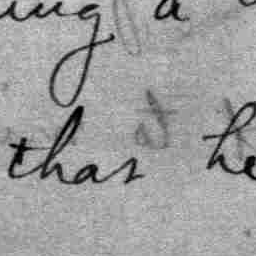 ing a
than he